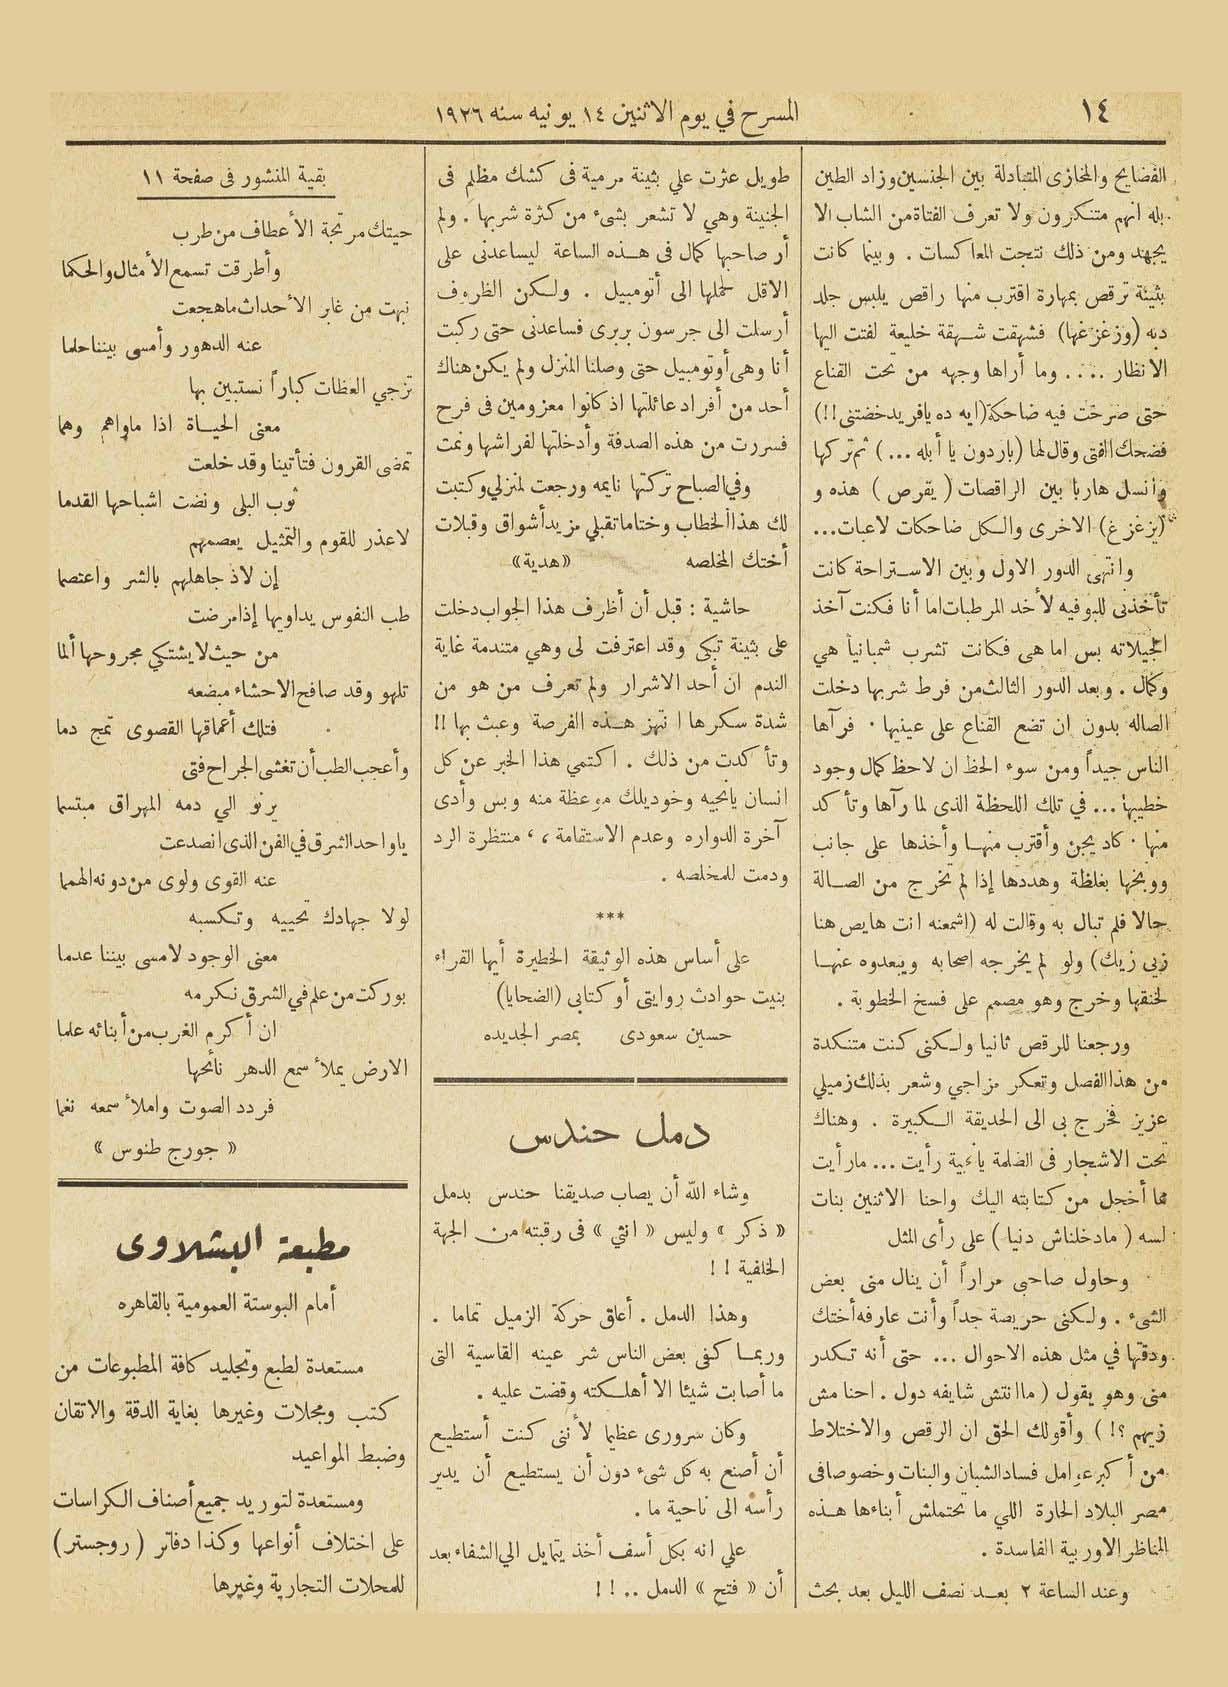 ١٤
المسرح في يوم الاثنين ١٤ يونيه سنه ١٩٢٦
الفضايح والمخازى المتبادلة بين الجنسين وزاد الطين
بله انهم متنكرون ولا تعرف الفتاة من الشاب الا
يجهند ومن ذلك نتجت المعاكسات . وبينما كانت
بثينة ترقص بمهارة اقترب منها راقص يلبس جلد
دبه (وزغزغها) فشهقت شهقة خليعة لفتت اليها
الانظار .... وما أراها وجهه من تحت القناع
حتى صرخت فيه ضاحكة (ايه ده يافريد خضتنى !!)
فضحك الفتى وقال لها (باردون يا أبله ...) ثم تركها
وانسل هاربا بين الراقصات ( يقرص ) هذه و
(يزغزغ) الاخرى والكل ضاحكات لاعبات...
وانتهى الدور الاول وبين الاستراحة كانت
تأخذنى للبوفيه لأخد المرطبات اما أنا فكنت آخذ
الجيلاته بس اما هى فكانت تشرب شمبانيا هي
وكمال . وبعد الدور الثالث من فرط شربها دخلت
الصاله بدون ان تضع القناع على عينيها . فرآها
الناس جيداً ومن سوء الحظ ان لاحظ كمال وجود
خطيبها ... في تلك اللحظة الذى لما رآها وتأكد
منها . كاد يجن وأقترب منها وأخذها على جانب
ووبخها بغلظة وهددها إذا لم تخرج من الصالة
حالا فلم تبال به وقالت له (اشمعنه انت هايص هنا
زيى زيك) ولو لم يخرجه اصحابه ويبعدوه عنها
لخنقها وخرج وهو مصمم على فسخ الخطوبة .
ورجعنا للرقص ثانيا ولكنى كنت متنكدة
من هذا الفصل وتعكر مزاجي وشعر بذلك زميلي
عزيز فخرج بى الى الحديقة الكبيرة . وهناك
تحت الاشجار فى الضلمة يانجية رأيت ... مارأيت
مما أخجل من كتابته اليك واحنا الاثنين بنات
لسه ( مادخلناش دنيا ) على رأى المثل
وحاول صاحبى مراراً أن ينال منى بعض
الشىء . ولكنى حريصة جداً وأنت عارفه أختك
ودقتها في مثل هذه الاحوال ... حتى أنه تكدر
منى وهو يقول ( ماانتش شايفه دول . احنا مش
زيهم ؟! ) وأقولك الحق ان الرقص والاختلاط
من أكبر عوامل فساد الشبان والبنات وخصوصا فى
مصر البلاد الحارة اللي ما تحتملش أبناءها هذه
المناظر الاوربية الفاسدة .
وعند الساعة ٢ بعد نصف الليل بعد بحث
طويل عثرت علي بثينة مرمية فى كشك مظلم فى
الجنينة وهي لا تشعر بشىء من كثرة شربها . ولم
أر صاحبها كمال فى هذه الساعة ليساعدنى على
الاقل لحملها الى أتومبيل . ولكن الظروف
أرسلت الى جرسون بربرى فساعدنى حتى ركبت
أنا وهى أوتومبيل حتى وصلنا المنزل ولم يكن هناك
أحد من أفراد عائلتها اذ كانوا معزومين فى فرح
فسررت من هذه الصدفة وأدخلتها لفراشها ونمت
وفي الصباح تركتها نايمه ورجعت لمنزلي وكتبت
لك هذا الخطاب وختاما تقبلي مزيد أشواق وقبلات
أختك المخلصه «هدية»
حاشية : قبل أن أظرف هذا الجواب دخلت
على بثينة تبكى وقد اعترفت لى وهي متندمة غاية
الندم ان أحد الاشرار ولم تعرف من هو من
شدة سكرها انتهز هذه الفرصة وعبث بها !!
وتأكدت من ذلك . اكتمي هذا الخبر عن كل
انسان يانجيه وخوديلك موعظة منه وبس وأدى
آخرة الدواره وعدم الاستقامة ،، منتظرة الرد
ودمت للمخلصه .
***
على أساس هذه الوثيقة الخطيرة أيها القراء
بنيت حوادث روايتى أو كتابى (الضحايا)
حسين سعودى بمصر الجديده
دمل حندس
وشاء الله أن يصاب صديقنا حندس بدمل
« ذكر » وليس « انثي » فى رقبته من الجهة
الخلفية ! !
وهذا الدمل . أعاق حركة الزميل تماما .
وربما كفى بعض الناس شر عينه القاسية التى
ما أصابت شيئا الا أهلكته وقضت عليه .
وكان سرورى عظيما لأننى كنت أستطيع
أن أصنع به كل شىء دون أن يستطيع أن يدير
رأسه الى ناحية ما .
علي انه بكل أسف أخذ يتمايل الي الشفاء بعد
أن « فتح » الدمل .. ! !
بقية المنشور فى صفحة ١١
حيتك مرتجة الأعطاف من طرب
وأطرقت تسمع الأمثال والحكما
نبهت من غابر الأحداث ماهجعت
عنه الدهور وأمسى بيننا حلما
تزجي العظات كباراً نستبين بها
معنى الحياة اذا ماواهم وهما
تمضى القرون فتأتينا وقد خلعت
ثوب البلى ونضت اشباحها القدما
لاعذر للقوم والتمثيل يعصمهم
إن لاذ جاهلهم بالشر واعتصما
طب النفوس يداويها إذا مرضت
من حيث لا يشتكي مجروحها ألما
تلهو وقد صافح الاحشاء مبضعه
فتلك أعماقها القصوى تمج دما
وأعجب الطب أن تغشى الجراح فتى
يرنو الي دمه المهراق مبتسما
ياواحد الشرق في الفن الذى انصدعت
عنه القوى ولوى من دونه الهمما
لولا جهادك تحييه وتكسبه
معنى الوجود لامسى بيننا عدما
بوركت من علم في الشرق نكرمه
ان أكرم الغرب من أبنائه علما
الارض يملأ سمع الدهر نائحها
فردد الصوت واملأ سمعه نغما
« جورج طنوس »
مطبعة البشلاوى
أمام البوستة العمومية بالقاهره
مستعدة لطبع وتجليد كافة المطبوعات من
كتب ومجلات وغيرها بغاية الدقة والاتقان
وضبط المواعيد
ومستعدة لتوريد جميع أصناف الكراسات
على اختلاف أنواعها وكذا دفاتر ( روجستر )
للمحلات التجارية وغيرها